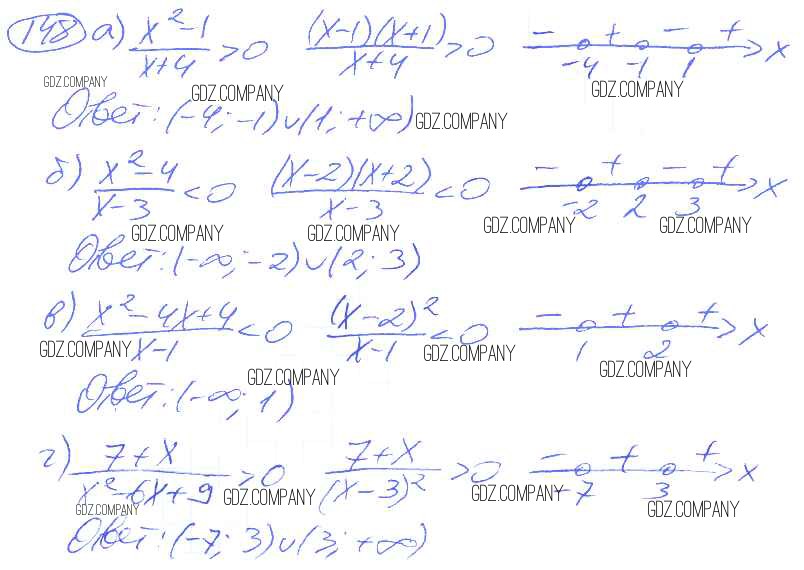 148 а) (x² - 1)/(x + 4) > 0 ((x - 1)(x + 1))/(x + 4) > 0 - + - + x
-4 -1 1
GDZ.COMPANY GDZ.COMPANY GDZ.COMPANY
Ответ: (-4; -1) ∪ (1; +∞) GDZ.COMPANY
б) (x² - 4)/(x - 3) < 0 ((x - 2)(x + 2))/(x - 3) < 0 - + - + x
-2 2 3
GDZ.COMPANY GDZ.COMPANY GDZ.COMPANY GDZ.COMPANY
Ответ: (-∞; -2) ∪ (2; 3)
в) (x² - 4x + 4)/(x - 1) < 0 (x - 2)²/(x - 1) < 0 - + + x
1 2
GDZ.COMPANY GDZ.COMPANY GDZ.COMPANY
GDZ.COMPANY
Ответ: (-∞; 1)
г) (7 + x)/(x² - 6x + 9) > 0 (7 + x)/(x - 3)² > 0 - + + x
-7 3
GDZ.COMPANY GDZ.COMPANY GDZ.COMPANY GDZ.COMPANY
Ответ: (-7; 3) ∪ (3; +∞)